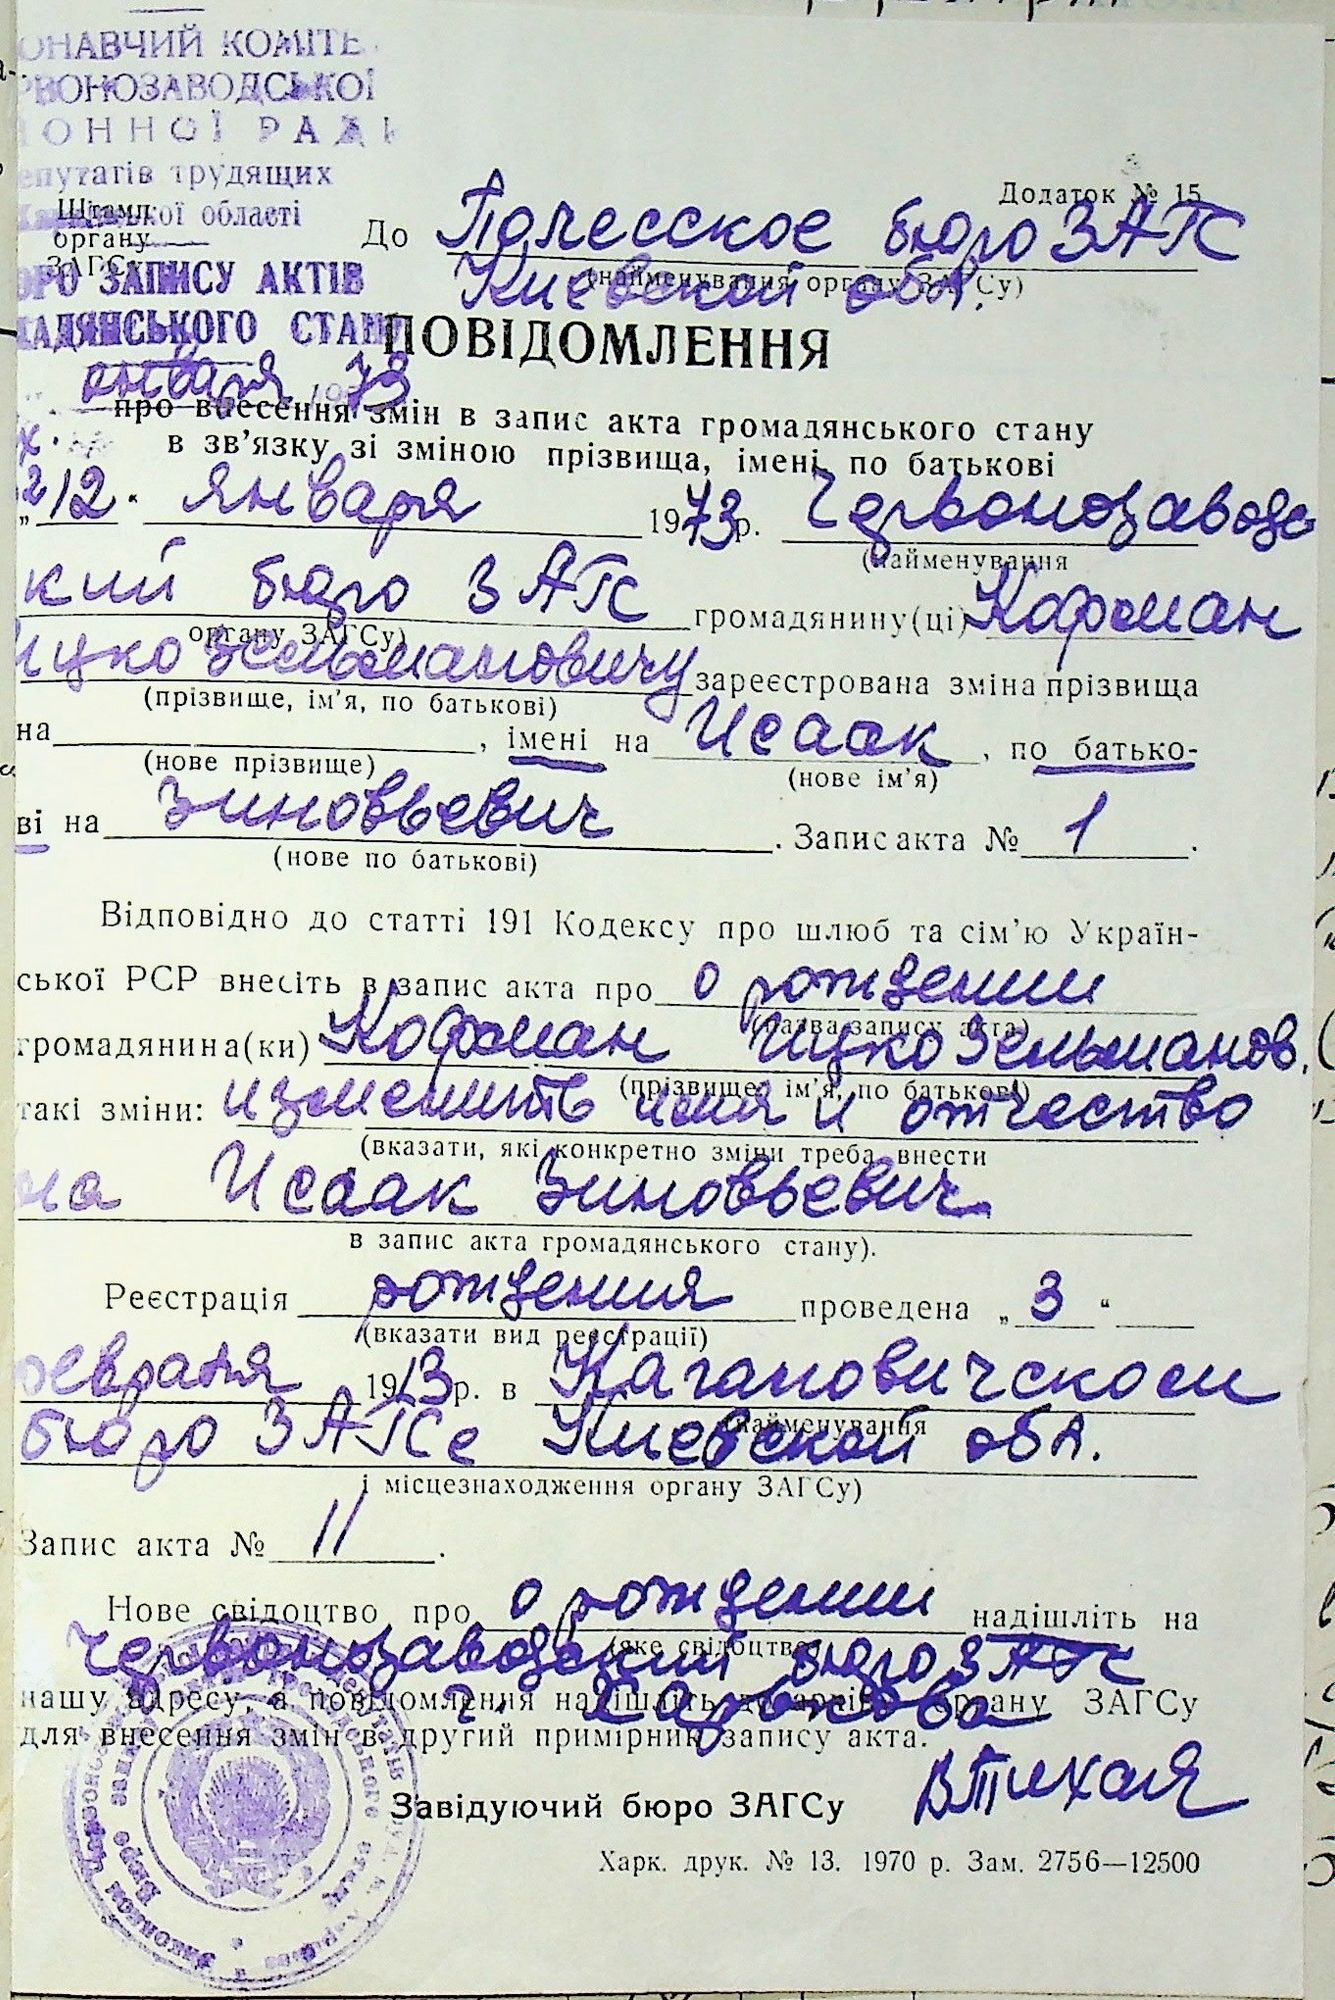 ОНАВЧИЙ КОМІТЕ
РВОНОЗАВОДСЬКОЇ
ЙОННОЇ РАДИ
епутатів трудящих
Харківської області
Штамп
органу
ЗАГСу
Додаток № 15
До Полесское бюро ЗАГС
(найменування органу ЗАГСу)
Киевской обл.
ЮРО ЗАПИСУ АКТІВ
МАДЯНСЬКОГО СТАНУ
января 1973
ПОВІДОМЛЕННЯ
про внесення змін в запис акта громадянського стану
в зв’язку зі зміною прізвища, імені, по батькові
„12. января 1973 р. Червонозаводс
(найменування
кий бюро ЗАГС громадянину(ці) Кофман
органу ЗАГСу)
Ицко Зельмановичу зареєстрована зміна прізвища
(прізвище, ім’я, по батькові)
на , імені на Исаак , по батько-
(нове прізвище) (нове ім’я)
ві на Зиновьевич . Запис акта № 1 .
(нове по батькові)
Відповідно до статті 191 Кодексу про шлюб та сім’ю Україн-
ської РСР внесіть в запис акта про о рождении
(назва запису акта)
громадянина(ки) Кофман Ицко Зельманов.
(прізвище, ім’я, по батькові)
такі зміни: изменить имя и отчество
(вказати, які конкретно зміни треба внести
на Исаак Зиновьевич
в запис акта громадянського стану).
Реєстрація рождения проведена „ 3 “
(вказати вид реєстрації)
февраля 1913 р. в Кагановичском
(найменування
бюро ЗАГСе Киевской обл.
і місцезнаходження органу ЗАГСу)
Запис акта № 11 .
Нове свідоцтво про о рождении надішліть на
(яке свідоцтво)
Червонозаводский бюро ЗАГС
нашу адресу, а повідомлення надішліть до архіву органу ЗАГСу
г. Харькова
для внесення змін в другий примірник запису акта.
Завідуючий бюро ЗАГСу ВТихая
Харк. друк. № 13. 1970 р. Зам. 2756—12500